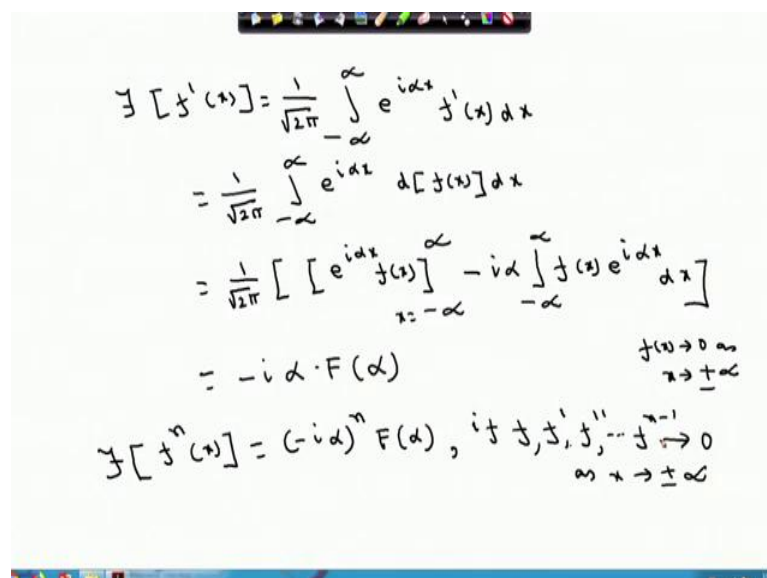 ℱ [f'(x)] = 1/√2π ∫_{-∞}^{∞} e^{iαx} f'(x) dx
= 1/√2π ∫_{-∞}^{∞} e^{iαx} d[f(x)] dx
= 1/√2π [ [e^{iαx} f(x)]_{x=-∞}^{∞} - iα ∫_{-∞}^{∞} f(x) e^{iαx} dx ]
f(x) → 0 as
x → ±∞
= -iα · F(α)
ℱ [f^n(x)] = (-iα)^n F(α), if f, f', f'', ... f^{n-1} → 0
as x → ±∞